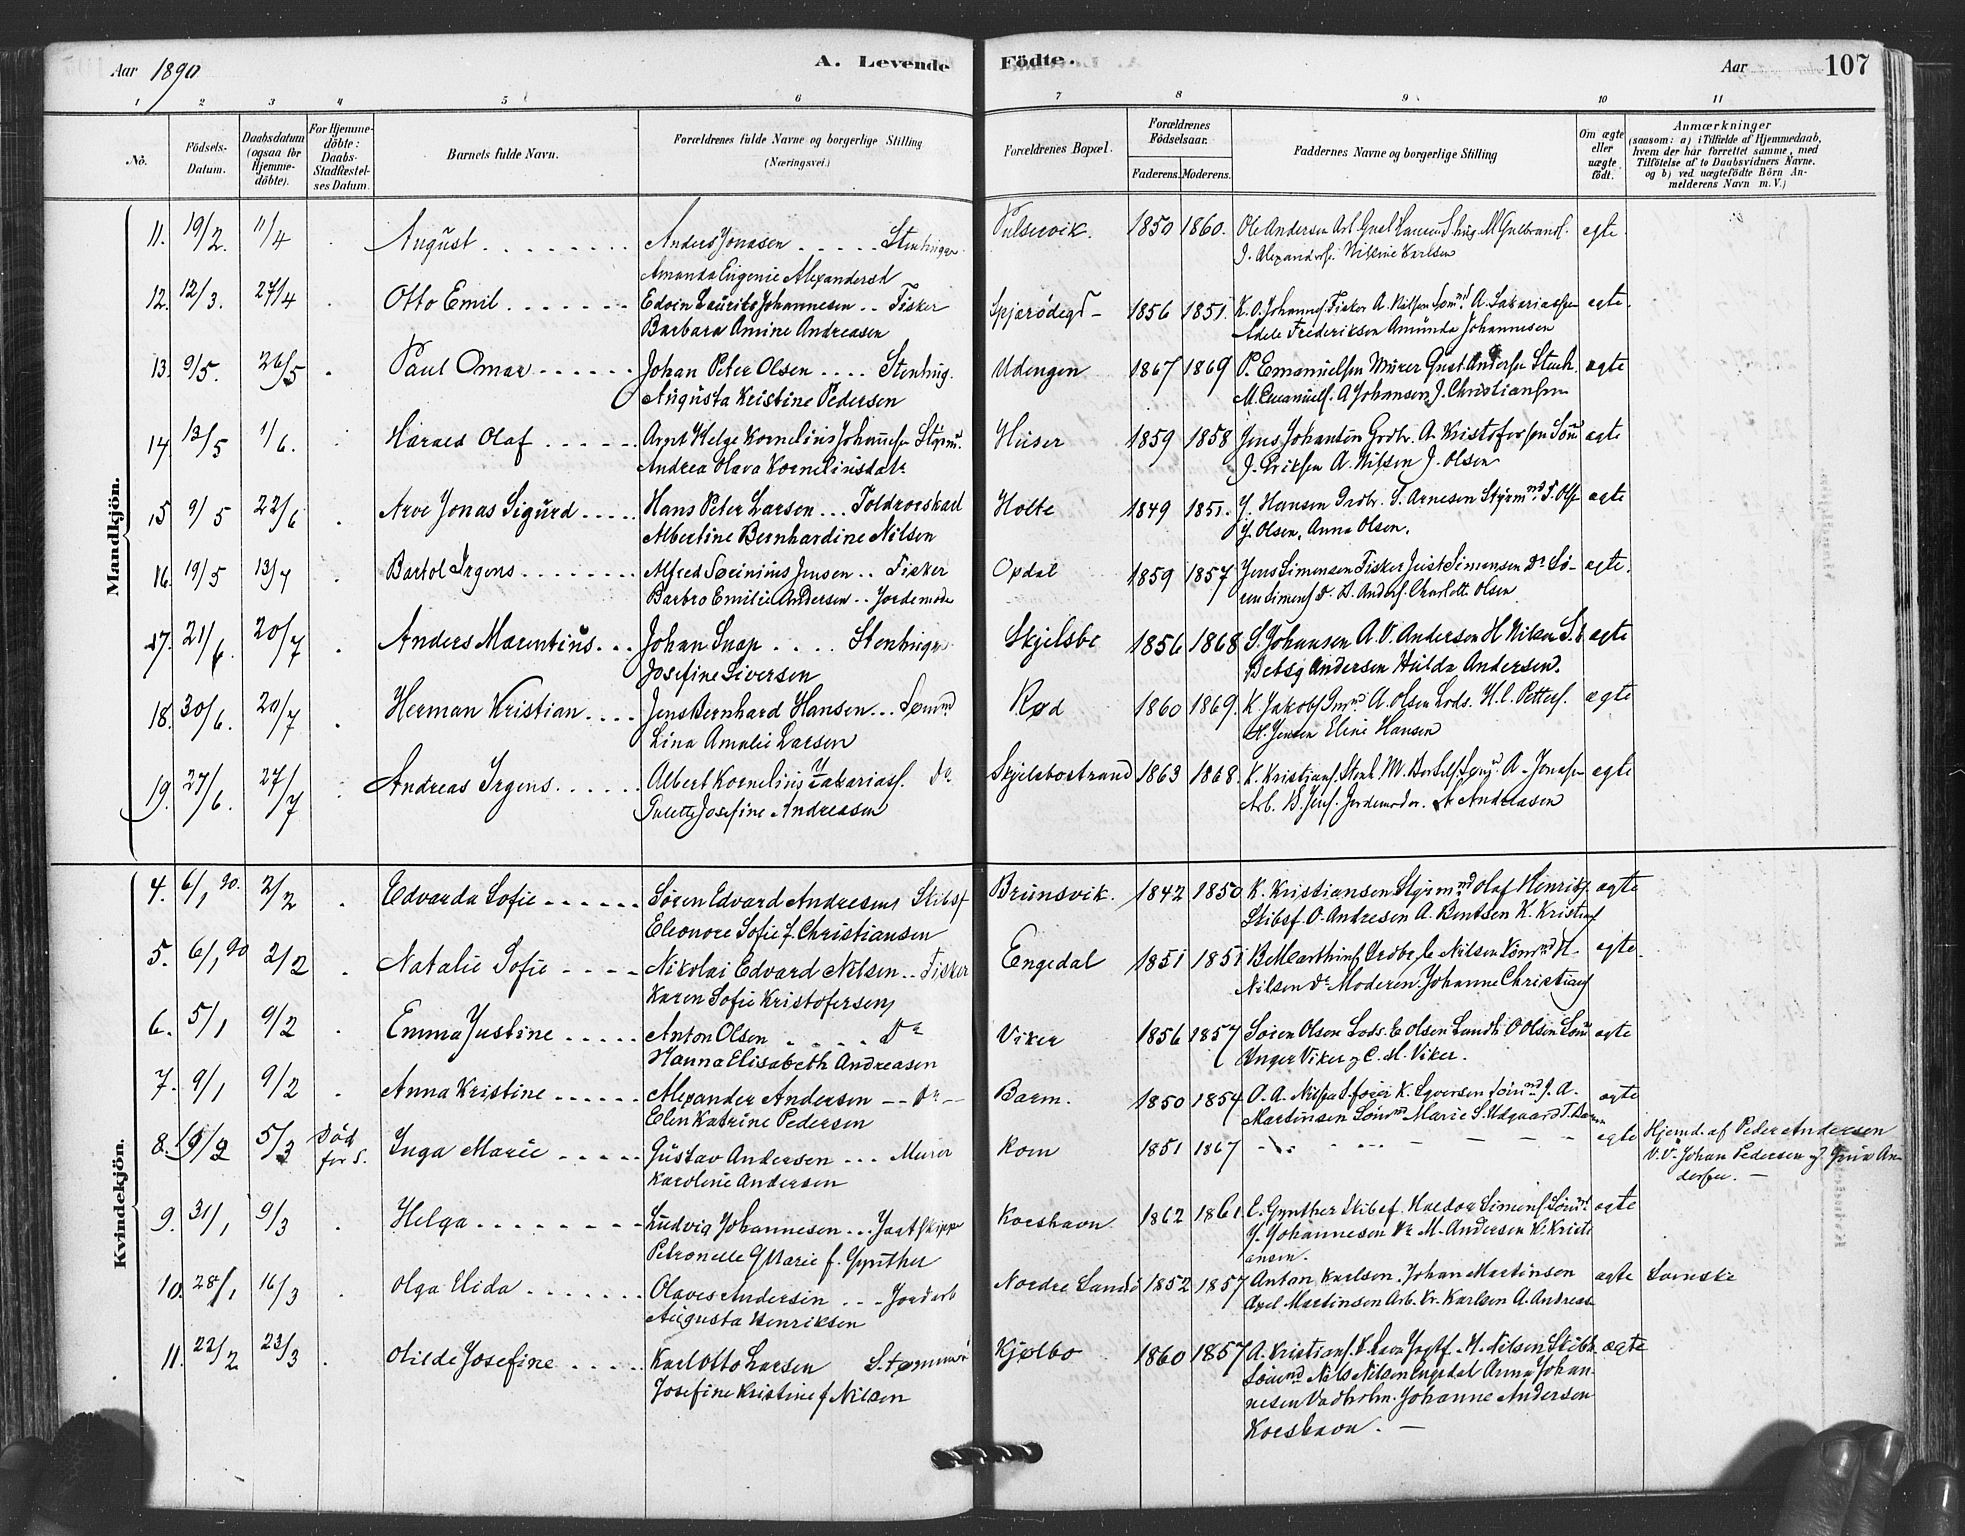 Aar 1890 A. Levende Födte. Aar 107
1 2 3 4 5 6 7 8 9 10 11
No. Födsels-Datum. Daabsdatum (ogsaa for Hjemme-döbte). For Hjemme-döbte: Daabs-Stadfæstel-ses Datum. Barnets fulde Navn. Forældrenes fulde Navne og borgerlige Stilling (Næringsvei.) Forældrenes Bopæl. Forældrenes Födselsaar. Faderens. Moderens. Faddernes Navne og borgerlige Stilling Om ægte eller uægte födt. Anmærkninger (saasom: a) i Tilfælde af Hjemmedaab, hvem der har forrettet samme, med Tilföielse af to Daabsvidners Navne. og b) ved uægtefödte Börn An-melderens Navn m. V.)
Mandkjön.
11. 19/2. 11/4 August Anders Jonasen Stenhugger 1850 1860. Ole Andersen Arb. ægte.
Amanda Eugenie Alexandersd J. Karlsen
12. 12/3. 27/4 Otto Emil Edvin Laurits Johannesen Fisker 1856 1851. Fisker A. Nilsen ægte.
Barbara Amine Andreasen Adele Frederiksen Amunda Johannesen
13. 9/5. 26/5 Paul Omar Johan Peter Olsen Stenhug. Udengen 1867 1869 P. Emanuelsen Murer Gust Andersen Stenh. ægte
Augusta Kristine Pedersen M. Emanuels. A Johansen J. Christiansen
14. 13/5 1/6. Harald Olaf Arnt Helge Kornelius Johannesen Huser 1859 1858 Jens Johansen Grdbr. A. Kristofersen ægte
Andrea Olava Korneliusdatr J. Eriksen A. Nilsen J. Olsen
15 9/5 22/6 Arve Jonas Sigurd Hans Peter Larsen Toldroerskarl Holte 1849 1851. Y. Hansen Grdbr. S. Arnesen Styrmnd ægte
Albertine Bernhardine Nilsen Y. Olsen, Anna Olsen.
16. 19/5 13/7 Bartol Irgens Alfred Sørinius Jensen Fisker Opdal 1859 1857 Jens Simensen Fisker Just Simensen Do Sø- ægte.
Barbro Emilie Andersen Jordemoder ren Simens Do A. Anders. Charlotte Olsen
17. 21/6. 20/7 Anders Marentius Johan Snap Stenhugger Skjelsbo 1856 1868 S. Johansen A. V. Andersen H Nilsen ægte
Josefine Siversen Betsy Andersen Hulda Andersen.
18. 30/6. 20/7 Herman Kristian Jens Bernhard Hansen Sømnd Rød 1860 1869. K Jakobs A. Olsen Lods. H. C. Petters. ægte
Lina Amalie Larsen H. Jensen Eline Hansen
19. 27/6. 27/7 Andreas Irgens Albert Kornelius Zakarias. Do Skjelsbostrand 1863 1868. K. Kristians. A. Jonasen ægte
Josefine Andreasen Arb. B. Jens. Jordemoder. A Andreasen
Kvindekjön.
4. 6/1 90. 2/2 Edvarda Sofie Søren Edvard Andresen Skibsf Brunsvik. 1842 1850 K. Kristiansen Styrmnd Olaf Henriks. ægte
Eleonore Sofie f. Christiansen Skibsf. O. Andresen A. Bentsen K. Kristians
5. 6/1 90 2/2 Natalie Sofie Nikolai Edvard Nilsen Fisker Engedal 1851 1851 B Marthins. Grdbr. C Nilsen Sømnd H. ægte.
Karen Sofie Kristofersen Nilsen Do Moderen. Johanne Christians
6. 5/1 9/2 Emma Justine Anton Olsen Do Viker 1856 1857 Søren Olsen Lods. C Olsen O Olsen ægte
Hanna Elisabeth Andreasen Unger Viker og C. M. Viker.
7. 9/1 9/2 Anna Kristine Alexander Andersen Do Barm. 1850 1854 O. A. Nilsen K. Syversen Sømnd J. A. ægte
Elen Katrine Pedersen Martinsen Sømnd Marie S. Udgaard T. Barm
8. 5/3 Død for S. Inga Marie Gustav Andersen Murer Rom 1851 1867 ægte Hjemd. af Peder Andersen
Karoline Andersen V. V. Johan Pedersen og An-
dersen.
9. 31/1 9/3 Helga Ludvig Johannesen Jagtskipper Korshavn 1862 1861 C. Gynther Skibsf. Haldor Simens Sømd ægte
Petronelle Marie f. Gynther J. Johannesen Do M. Andersen K. Kristi
ansen.
10. 28/1 16/3 Olga Elida Olaves Andersen Jordarb Nordre Sandø 1852 1857 Anton Karlsen. Johan Martinsen ægte Svenske
Augusta Henriksen Axel Martinsen Arb. Kr. Karlsen A. Andreas
11. 22/2 23/3 Olilde Josefine Karl Otto Larsen Kjølbo 1860 1857 A. Kristians. M. Nilsen ægte
Josefine Kristine f Nilsen Sømnd Nils Nilsen Engedal Anna Johan-
nesen Vadholm. Johanne Andersen
Korshavn.